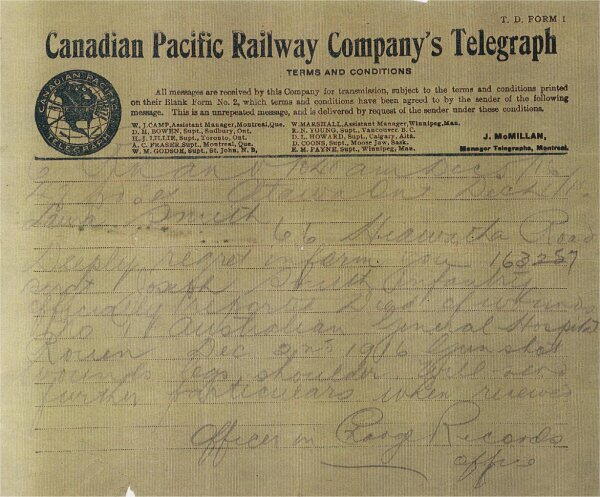 T. D. FORM 1
Canadian Pacific Railway Company's Telegraph
TERMS AND CONDITIONS
CANADIAN PACIFIC
TELEGRAPH
All messages are received by this Company for transmission, subject to the terms and conditions printed
on their Blank Form No. 2, which terms and conditions have been agreed to by the sender of the following
message. This is an unrepeated message, and is delivered by request of the sender under these conditions.
W. J. CAMP, Assistant Manager, Montreal, Que.
D. H. BOWEN, Supt., Sudbury, Ont.
H. J. LILLIE, Supt., Toronto, Ont.
A. C. FRASER, Supt., Montreal, Que.
W. M. GODSOE, Supt., St. John, N. B.
W. MARSHALL, Assistant Manager, Winnipeg, Man.
R. N. YOUNG, Supt., Vancouver B. C.
D. L. HOWARD, Supt., Calgary, Alta.
D. COONS, Supt., Moose Jaw, Sask.
E. M. PAYNE, Supt., Winnipeg, Man.
J. McMILLAN,
Manager Telegraphs, Montreal.
Ottawa Ont Dec
Smith
66 Hiawatha Road
Deeply regret inform you 163257
Sgt Joseph Smith Infantry
officially reported died of wounds
Australian General Hospital
Rouen Dec 2nd 1916 Gunshot
wounds legs shoulder Will send
further particulars when received
Officer in Charge Records
office